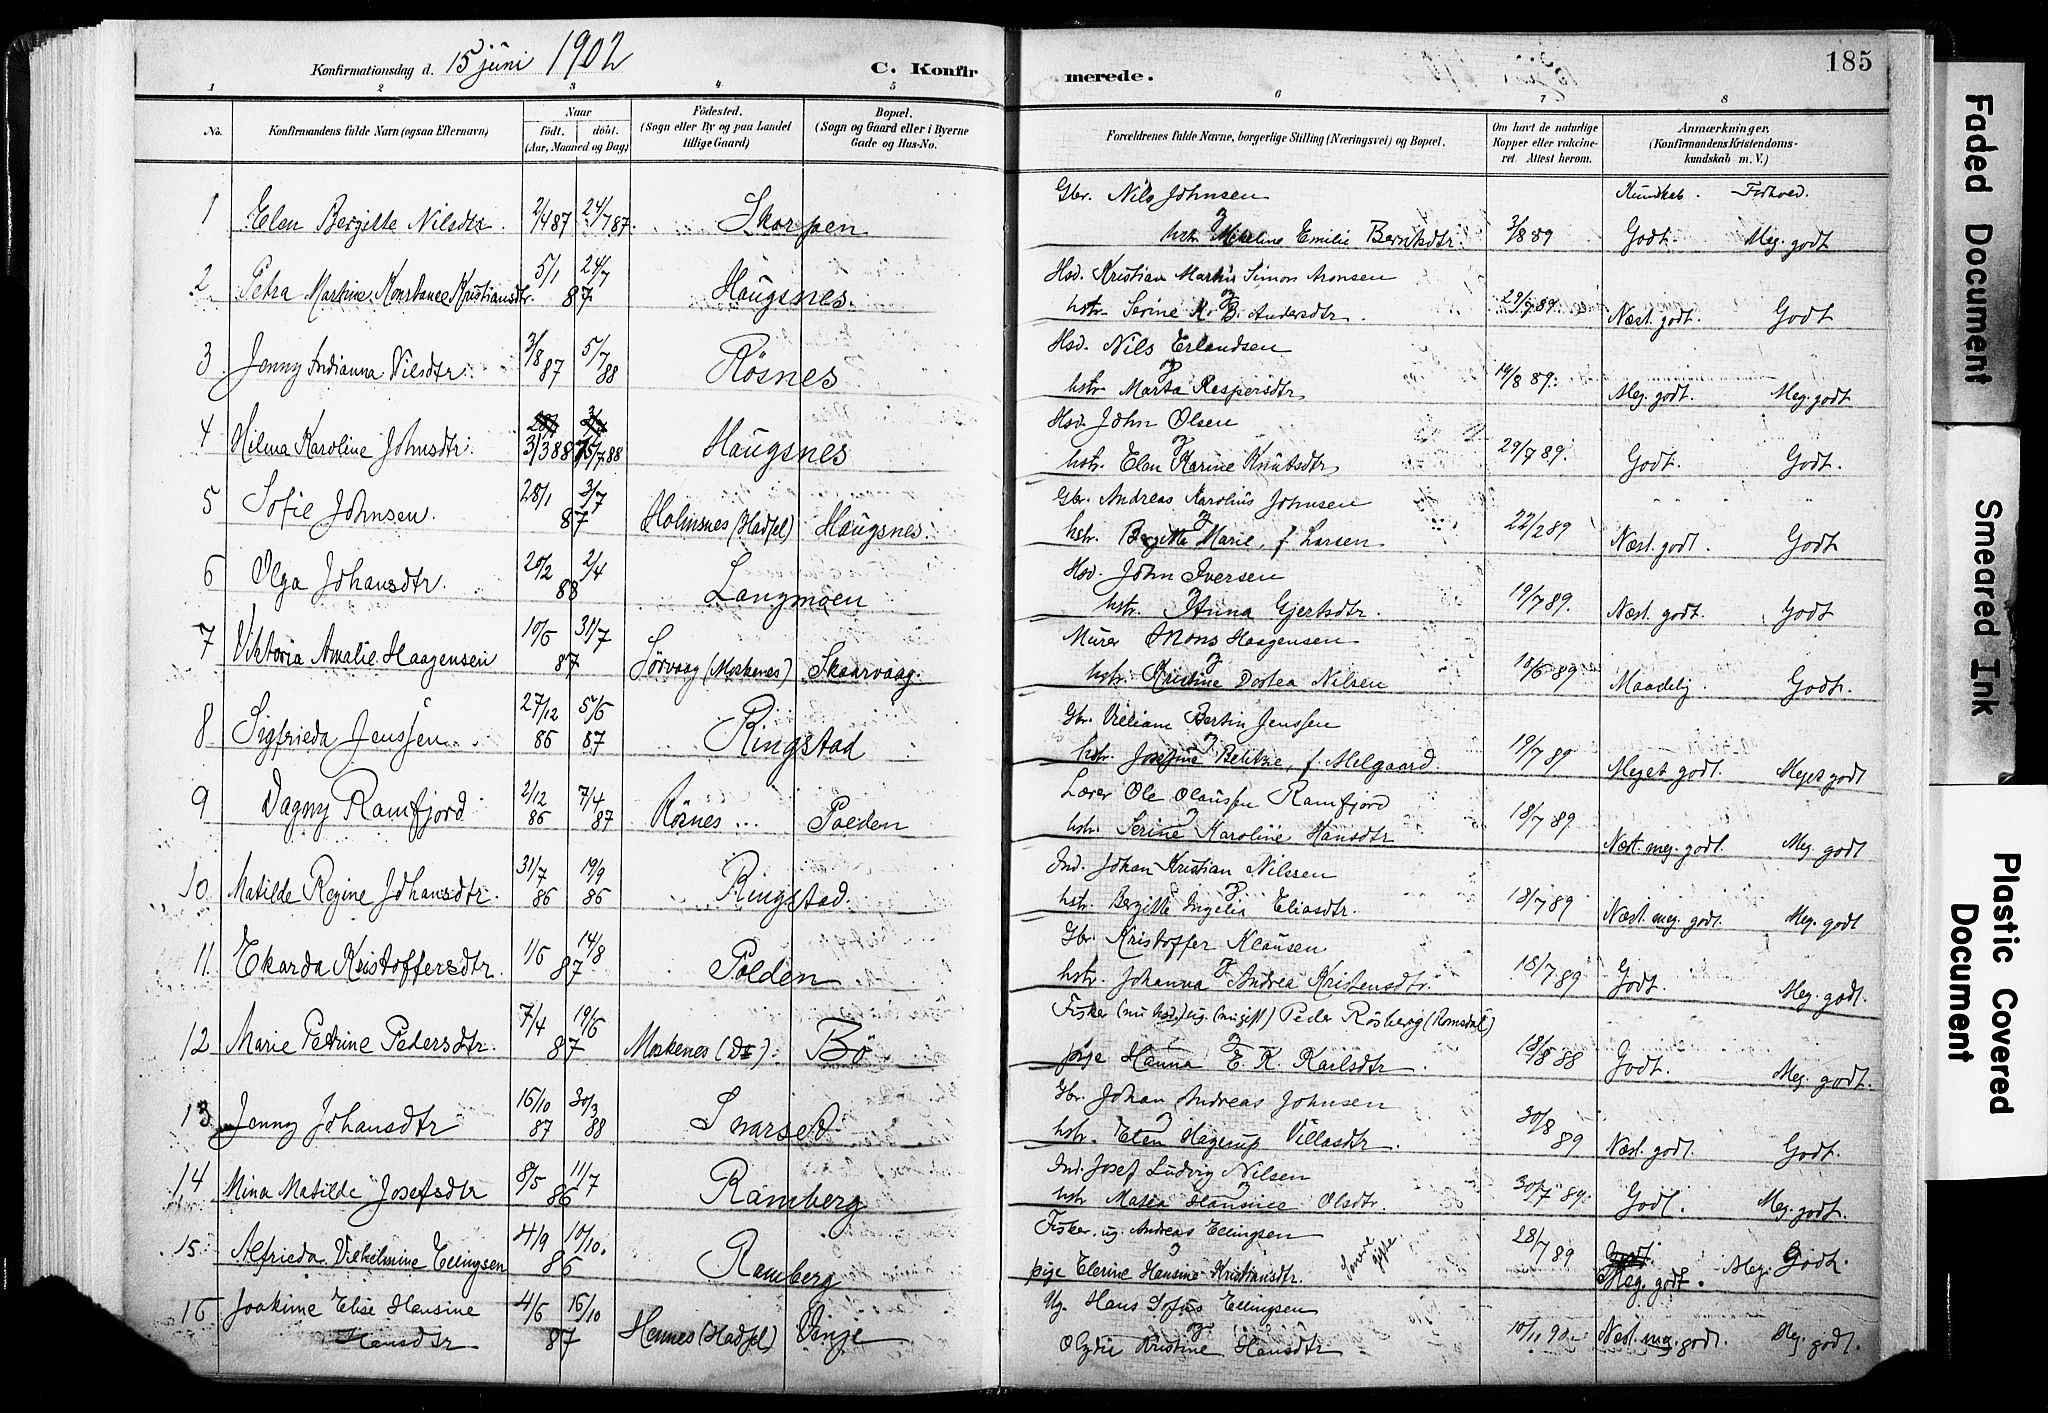 Konfirmationsdag d. 15 juni 1902 C. Konfirmerede. 185
1 2 3 4 5 6 7 8
No. Konfirmandens fulde Navn (ogsaa Efternavn) Naar født. døbt. (Aar, Maaned og Dag) Födested. (Sogn eller By og paa Landet tillige Gaard) Bopæl. (Sogn og Gaard eller i Byerne Gade og Hus-No. Forældrenes fulde Navne, borgerlige Stilling (Næringsvei) og Bopæl. Om havt de naturlige Kopper eller vakcineret. Attest herom. Anmærkninger. (Konfirmandens Kristendomskundskab m. V.)
Kundskab. Forhold.
1 Elen Bergitte Nilsdtr. 2/4 87 24/7 87. Skorpen Gbr. Nils Johnsen
og hstr. Mikeline Emilie Berntsdtr. 3/8 89 Godt. Meg. godt
2 Petra Martine Konstance Kristiansdtr. 5/1 24/7 87 Haugsnes. Hsd. Kristian Martin Simon Aronsen
og hstr. Serine K. B. Andersdtr. 29/7 89. Næst. godt. Godt
3 Jenny Indianna Nilsdtr. 3/8 87 5/7 88 Rösnes Hsd. Nils Erlandsen
og hstr. Marta Respersdtr. 19/8 89. Meg. godt. Meg. godt
4 Hilma Karoline Johnsdtr. 31/3 88 15/7 88 Haugsnes Hsd. John Olsen
og hstr. Elen Karine Knutsdtr 29/7 89. Godt. Godt.
5 Sofie Johnsen. 28/1 3/7 87 Holmsnes (Hadsel) Haugsnes. Gbr. Andreas Karolius Johnsen
og hstr. Bergitte Marie, f. Larsen 22/2 89 Næst. godt. Godt
6 Olga Johansdtr. 20/2 2/4 88 Langmoen Hsd. John Iversen
og hstr. Anna Gjertsdtr. 19/7 89. Næst. godt. Godt
7 Viktoria Amalie Haagensen 10/5 31/7 87 Sørvaag (Moskenes) Skaarvaag. Murer Mons Haagensen
og hstr. Kristine Dortea Nilsen 10/6 89 Maadelig. Godt.
8 Sigfrieda Jenssen 27/12 86 5/6 87 Ringstad Gbr. Villiam Bertin Jenssen
og hstr. Josefine Belitze, f. Melgaard. 19/7 89 Meget godt. Meget godt
9 Dagny Ramfjord 2/12 86 7/4 87 Røsnes Polden Lærer Ole Olaussen Ramfjord
og hstr. Serine Karoline Hansdtr 18/7 89 Næst. meg. godt. Meg. godt
10. Matilde Regine Johansdtr. 31/7 86 19/9 86 Ringstad. Ind. Johan Kristian Nilssen
og hstr. Bergitte Ingelia Eliasdtr. 18/7 89 Næst. meg. godt. Meg. godt
11. Ekarda Kristoffersdtr. 1/5 14/8 87 Polden Gbr. Kristoffer Klausen
og hstr. Johanna Andrea Kristensdtr. 18/7 89 Godt. Meg. godt.
12 Marie Petrine Pedersdtr. 7/4 19/6 87 Moskenes Bö Fisker (nu hsd.) ug. (nu gift) Peder Rösberg (Romsdal)
og pige Hanna E. K. Karlsdtr 18/8 88 Godt. Meg. godt.
13 Jenny Johansdtr 16/10 87 30/3 88 Svarsed. Gbr. Johan Andreas Johnsen
og hstr. Elen Hagerup Villasdtr. 30/8 89 Næst. godt. Godt.
14 Mina Matilde Josefsdtr 8/5 11/7 86 Ramberg Ind. Josef Ludvig Nilsen
og hstr Matea Hansine Olsdtr. 30/7 89. Godt. Meg. godt.
15 Alfrieda Vilhelmine Ellingsen 4/9 10/10. 86 Ramberg Fisker. ug. Andreas Ellingsen
og pige Elerine Hansine Kristiansdtr. Senere gifte. 28/7 89 Meg. godt. Meg. Godt.
16 Joakime Elise Hansine Hansdtr 4/6 16/10 87 Hennes (Hadsel) Vinje Ug. Hans Sofus Ellingsen
og Olydie Kristine Hansdtr 10/11 90. Næst. meg. godt. Meg. godt.
Faded Document
Smeared Ink
Plastic Covered Document